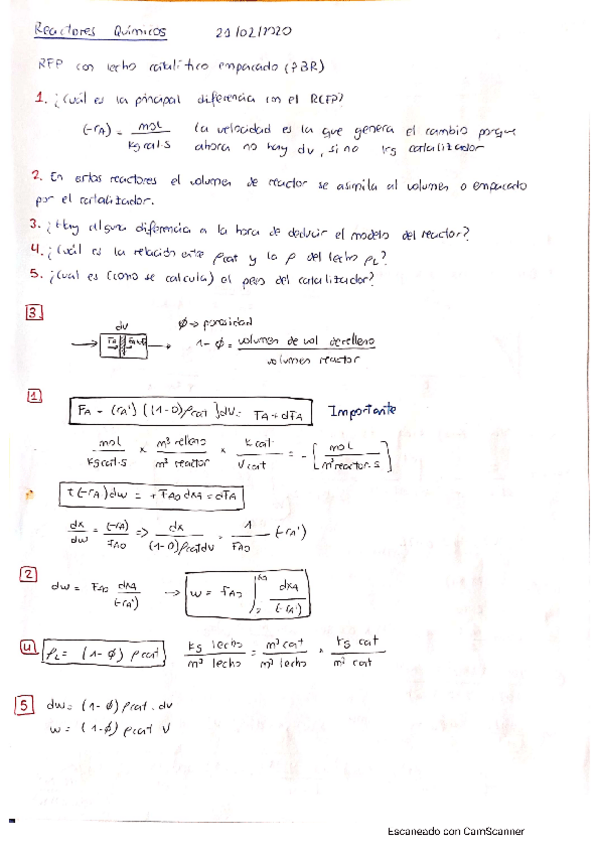 Reactores Químicos 21/02/2020
RFP con lecho catalítico empacado (PBR)
1. ¿Cuál es la principal diferencia con el RCFP?
(-rA) = mol / kg cat·s la velocidad es la que genera el cambio porque
ahora no hay dv, si no kg catalizador
2. En estos reactores el volumen de reactor se asimila al volumen o empacado
por el catalizador.
3. ¿Hay alguna diferencia a la hora de deducir el modelo del reactor?
4. ¿Cuál es la relación entre ρcat y la ρ del lecho ρL?
5. ¿Cual es (como se calcula) el peso del catalizador?
3
dv
Ø → porosidad
1 - Ø = volumen de vol de relleno / volumen reactor
1
FA - (rA') ((1-Ø)ρcat)dV = FA + dFA Importante
mol / kg cat·s × m³ relleno / m³ reactor × k cat / V cat = - [mol / m³ reactor·s]
+(-rA)dw = +FAO dXA = dFA
dx/dw = (-rA)/FAO => dx / (1-Ø)ρcat dv = 1/FAO (-rA')
2
dw = FAO dXA/(-rA') → w = FAO ∫ dXA/(-rA')
4
ρL = (1-Ø) ρcat kg lecho / m³ lecho = m³ cat / m³ lecho × kg cat / m³ cat
5
dw = (1-Ø) ρcat · dv
w = (1-Ø) ρcat V
Escaneado con CamScanner